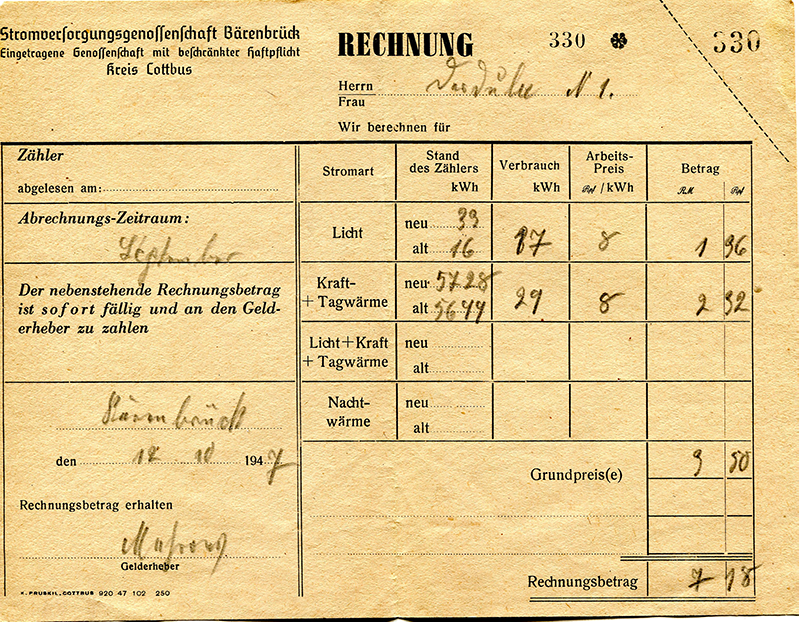 Stromversorgungsgenossenschaft Bärenbrück
Eingetragene Genossenschaft mit beschränkter Haftpflicht
Kreis Cottbus
RECHNUNG 330 330
Herrn N 1.
Frau
Wir berechnen für
Zähler
abgelesen am:
Abrechnungs-Zeitraum:
September
Der nebenstehende Rechnungsbetrag
ist sofort fällig und an den Geld-
erheber zu zahlen
Bärenbrück
den 12 10 1947
Rechnungsbetrag erhalten
Gelderheber
K. PRUSKIL, COTTBUS 920 47 102 250
Stromart Stand des Zählers kWh Verbrauch kWh Arbeits-Preis Rpf / kWh Betrag RM Rpf
Licht neu 33 alt 16 17 8 1 36
Kraft- + Tagwärme neu 5728 alt 5699 29 8 2 32
Licht + Kraft + Tagwärme neu alt
Nacht-wärme neu alt
Grundpreis(e) 3 50
Rechnungsbetrag 7 18